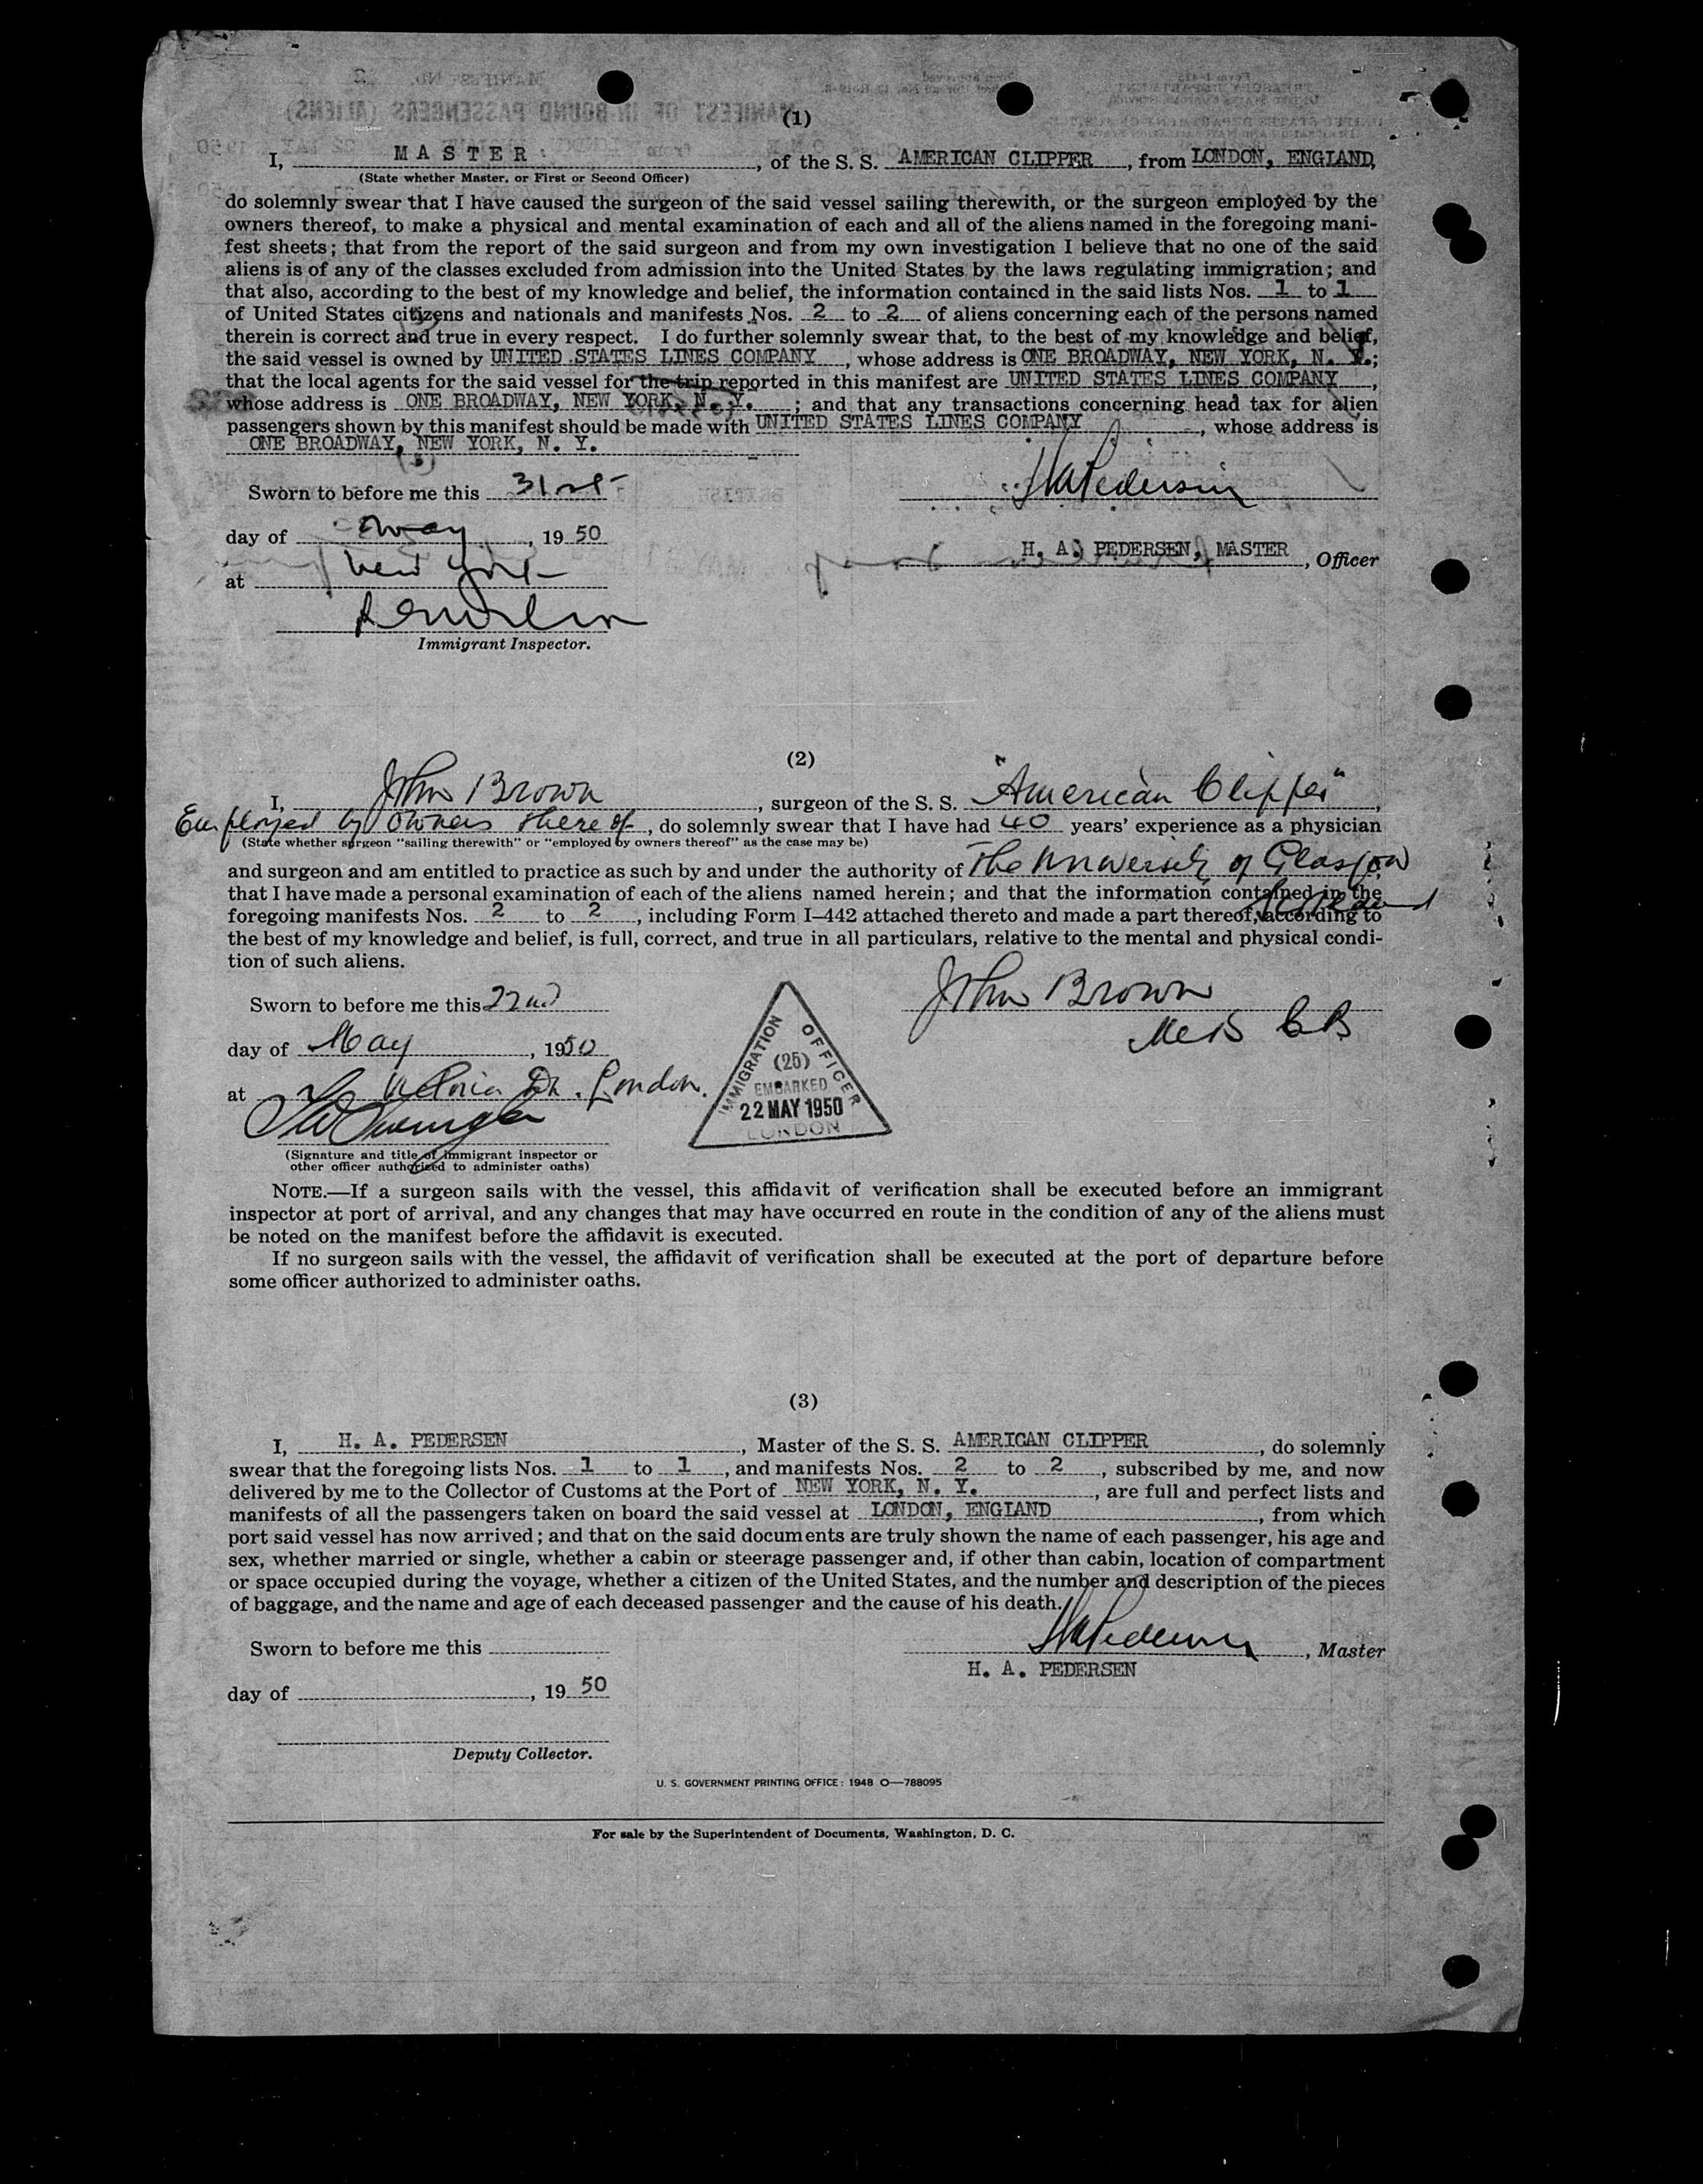 (1)
I, MASTER, of the S. S. AMERICAN CLIPPER, from LONDON, ENGLAND,
(State whether Master, or First or Second Officer)
do solemnly swear that I have caused the surgeon of the said vessel sailing therewith, or the surgeon employed by the
owners thereof, to make a physical and mental examination of each and all of the aliens named in the foregoing mani-
fest sheets; that from the report of the said surgeon and from my own investigation I believe that no one of the said
aliens is of any of the classes excluded from admission into the United States by the laws regulating immigration; and
that also, according to the best of my knowledge and belief, the information contained in the said lists Nos. 1 to 1
of United States citizens and nationals and manifests Nos. 2 to 2 of aliens concerning each of the persons named
therein is correct and true in every respect. I do further solemnly swear that, to the best of my knowledge and belief,
the said vessel is owned by UNITED STATES LINES COMPANY, whose address is ONE BROADWAY, NEW YORK, N. Y.;
that the local agents for the said vessel for the trip reported in this manifest are UNITED STATES LINES COMPANY,
whose address is ONE BROADWAY, NEW YORK, N. Y.; and that any transactions concerning head tax for alien
passengers shown by this manifest should be made with UNITED STATES LINES COMPANY, whose address is
ONE BROADWAY, NEW YORK, N. Y.
Sworn to before me this 31st
H A Pedersen
day of May, 19 50
H. A. PEDERSEN, MASTER, Officer
at New York
Immigrant Inspector.
(2)
I, John Brown, surgeon of the S. S. "American Clipper",
Employed by owners thereof, do solemnly swear that I have had 40 years' experience as a physician
(State whether surgeon "sailing therewith" or "employed by owners thereof" as the case may be)
and surgeon and am entitled to practice as such by and under the authority of The University of Glasgow
Scotland
that I have made a personal examination of each of the aliens named herein; and that the information contained in the
foregoing manifests Nos. 2 to 2, including Form I–442 attached thereto and made a part thereof, according to
the best of my knowledge and belief, is full, correct, and true in all particulars, relative to the mental and physical condi-
tion of such aliens.
Sworn to before me this 22nd
John Brown
day of May, 1950
at Victoria Dk. London.
IMMIGRATION OFFICER
(25)
EMBARKED
22 MAY 1950
LONDON
(Signature and title of immigrant inspector or
other officer authorized to administer oaths)
NOTE.—If a surgeon sails with the vessel, this affidavit of verification shall be executed before an immigrant
inspector at port of arrival, and any changes that may have occurred en route in the condition of any of the aliens must
be noted on the manifest before the affidavit is executed.
If no surgeon sails with the vessel, the affidavit of verification shall be executed at the port of departure before
some officer authorized to administer oaths.
(3)
I, H. A. PEDERSEN, Master of the S. S. AMERICAN CLIPPER, do solemnly
swear that the foregoing lists Nos. 1 to 1, and manifests Nos. 2 to 2, subscribed by me, and now
delivered by me to the Collector of Customs at the Port of NEW YORK, N. Y., are full and perfect lists and
manifests of all the passengers taken on board the said vessel at LONDON, ENGLAND, from which
port said vessel has now arrived; and that on the said documents are truly shown the name of each passenger, his age and
sex, whether married or single, whether a cabin or steerage passenger and, if other than cabin, location of compartment
or space occupied during the voyage, whether a citizen of the United States, and the number and description of the pieces
of baggage, and the name and age of each deceased passenger and the cause of his death.
Sworn to before me this
H A Pedersen, Master
H. A. PEDERSEN
day of , 19 50
Deputy Collector.
U. S. GOVERNMENT PRINTING OFFICE: 1948 O—788095
For sale by the Superintendent of Documents, Washington, D. C.